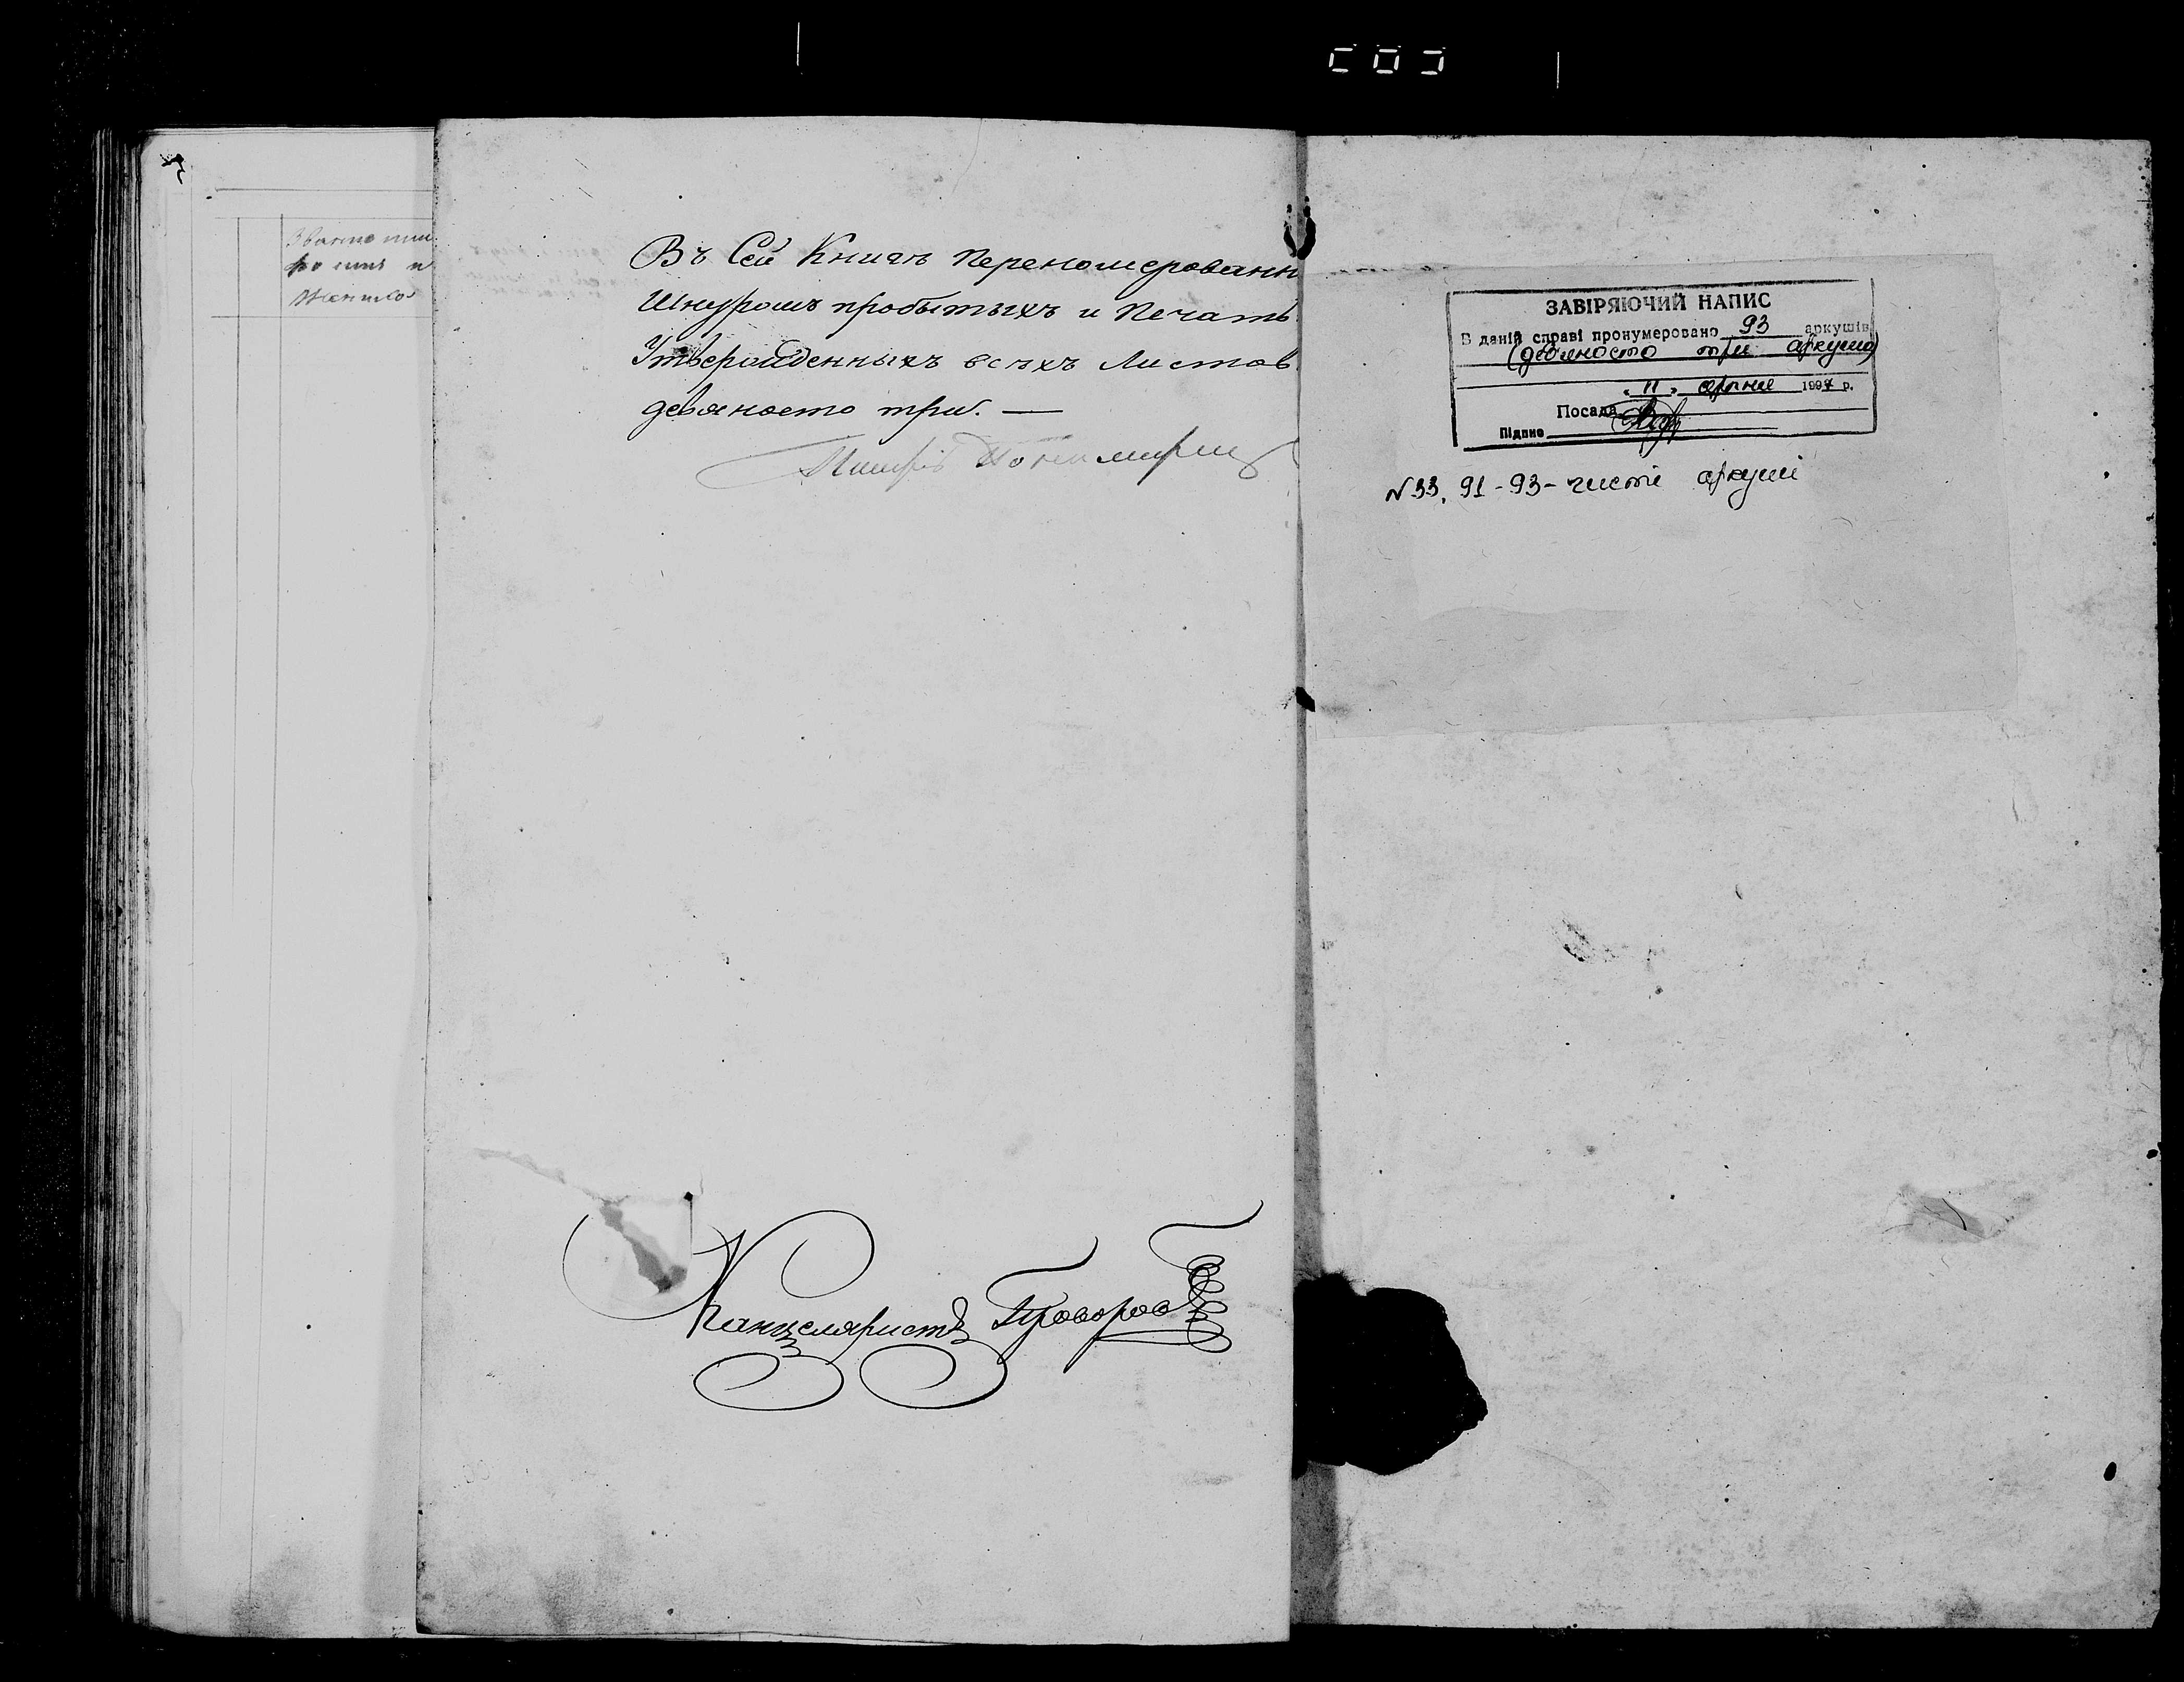 Званіе
Въ Сей Книгѣ Переномерованн
Шнуромъ пробытыхъ и Печать
Утвержденныхъ всѣхъ Листов
девяносто три. —
Канцеляристъ Проворов
ЗАВІРЯЮЧИЙ НАПИС
В даній справі пронумеровано 93 аркушів
(девяносто три аркуша)
"11" серпня 1997 р.
Посада
Підпис
N 33, 91-93 - чисті аркуші